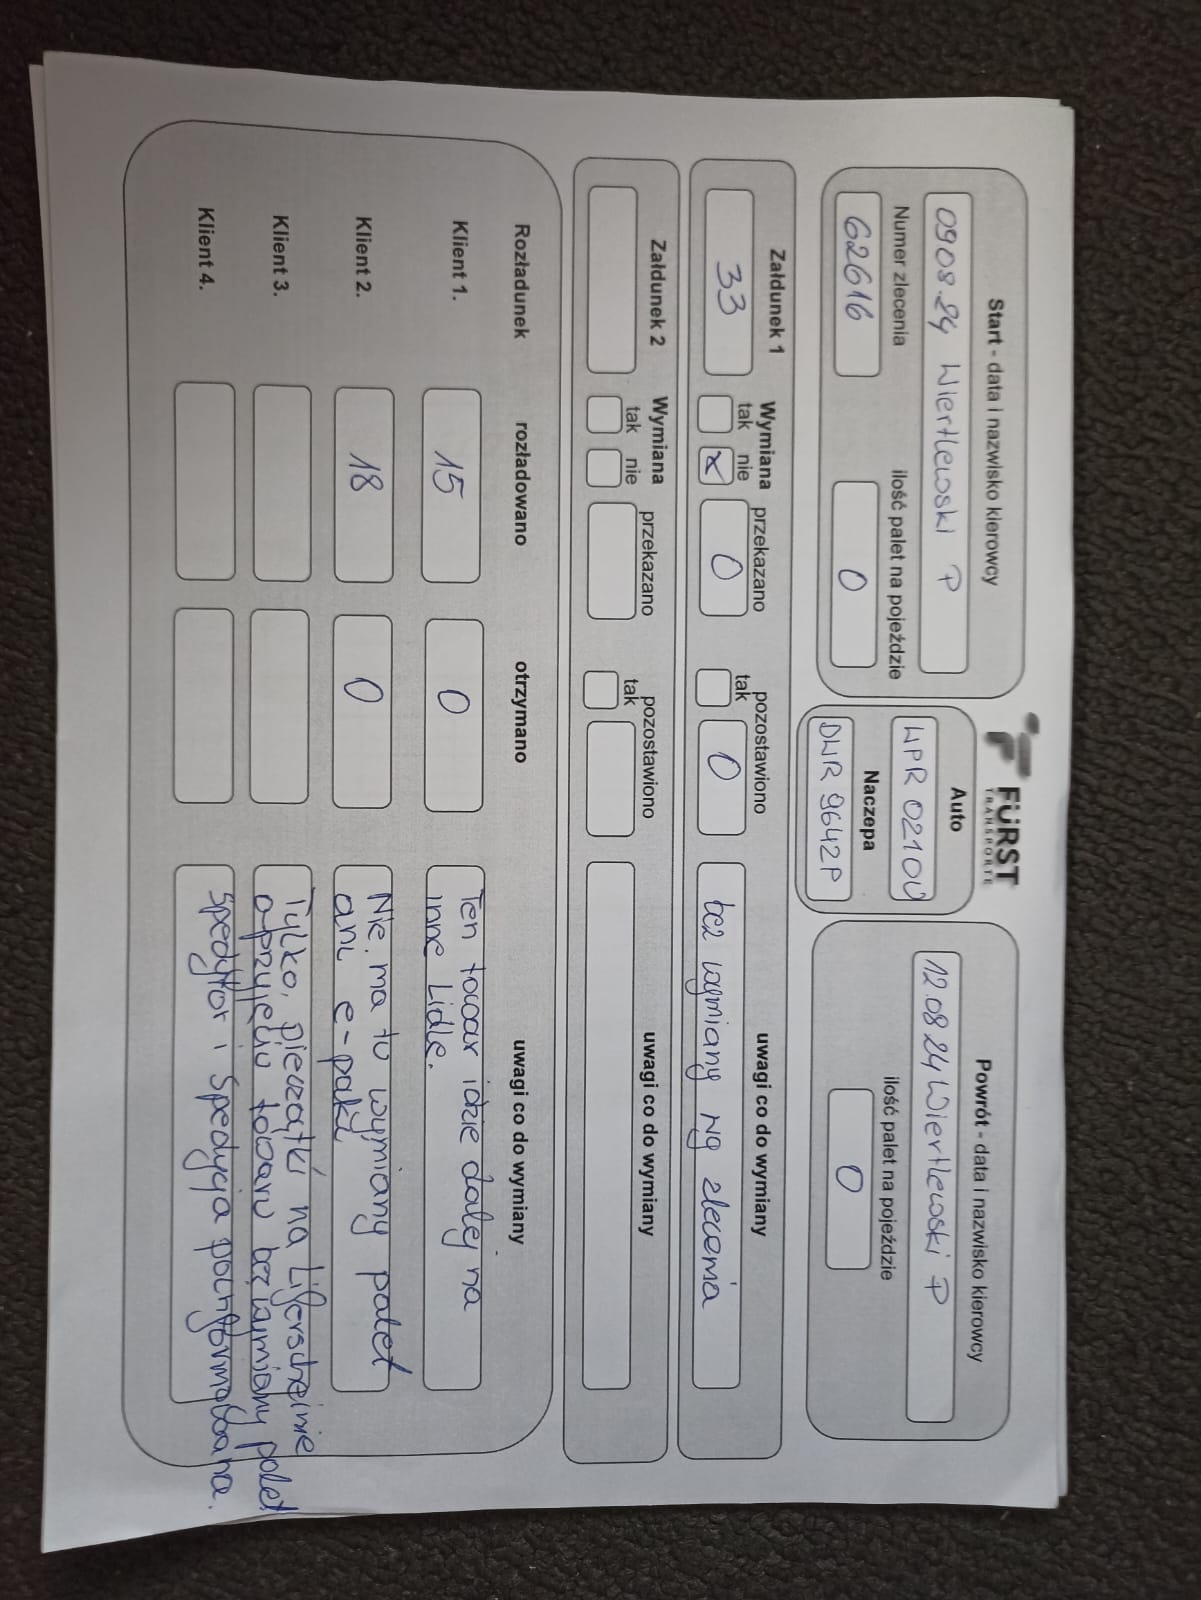 Start - data i nazwisko kierowcy
0908.24 Wiertlewski P
Numer zlecenia
ilość palet na pojeździe
62616
0
FÜRST
TRANSPORTE
Auto
WPR 0210U
Naczepa
DWR 9642P
Powrót - data i nazwisko kierowcy
12.08.24 Wiertlewski P
ilość palet na pojeździe
0
Załdunek 1
Wymiana
tak nie
przekazano
pozostawiono
tak
uwagi co do wymiany
33
x
0
0
bez wymiany wg zlecenia
Załdunek 2
Wymiana
tak nie
przekazano
pozostawiono
tak
uwagi co do wymiany
Rozładunek
rozładowano
otrzymano
uwagi co do wymiany
Klient 1.
15
0
Ten towar idzie dalej na
inne Lidle.
Klient 2.
18
0
Nie ma tu wymiany palet
ani e-paki
Klient 3.
Tylko pieczątki na Liferscheinie
o przyjęciu towaru bez wymiany palet
Klient 4.
Spedytor i Spedycja poinformowana.